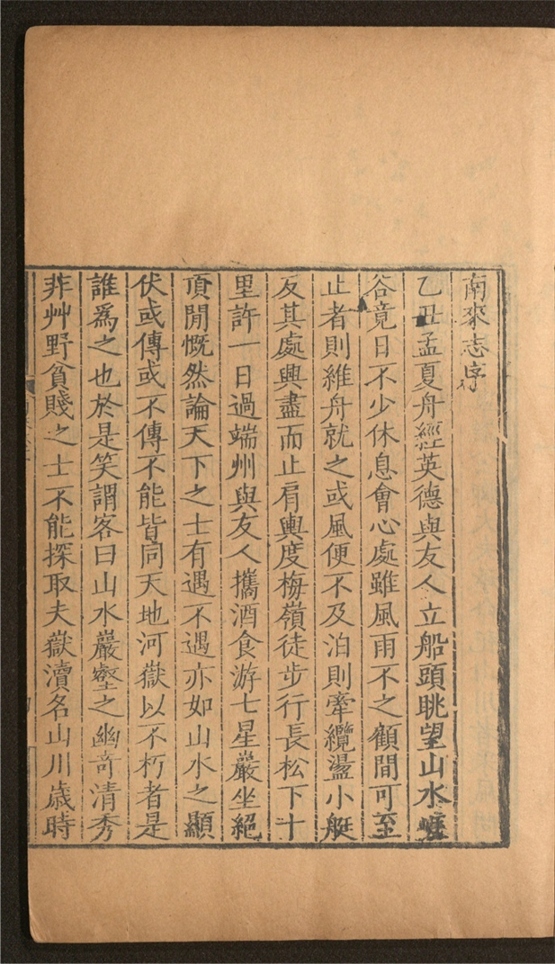 南來志序
乙丑孟夏舟經英德與友人立船頭眺望山水崕
谷竟日不少休息會心處雖風雨不之顧間可至
止者則維舟就之或風便不及泊則牽纜盪小艇
反其處興盡而止肩輿度梅嶺徒步行長松下十
里許一日過端州與友人攜酒食游七星巖坐絕
頂閒慨然論天下之士有遇不遇亦如山水之顯
伏或傳或不傳不能皆同天地河嶽以不朽者是
誰爲之也於是笑謂客曰山水巖壑之幽奇清秀
非艸野貧賤之士不能探取夫嶽瀆名山川歲時